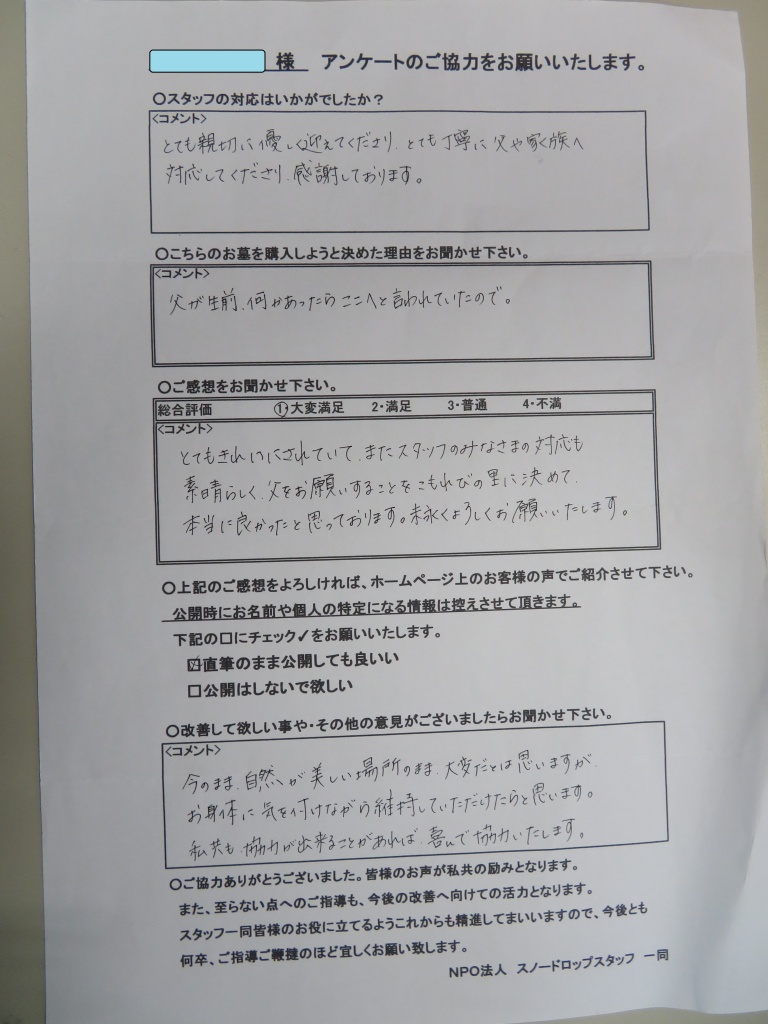 様 アンケートのご協力をお願いいたします。
〇スタッフの対応はいかがでしたか？
<コメント>
とても親切に優しく迎えてくださり、とても丁寧に父や家族へ
対応してくださり、感謝しております。
〇こちらのお墓を購入しようと決めた理由をお聞かせ下さい。
<コメント>
父が生前、何かあったらここへと言われていたので。
〇ご感想をお聞かせ下さい。
総合評価 ①大変満足 2・満足 3・普通 4・不満
<コメント>
とてもきれいにされていて、またスタッフのみなさまの対応も
素晴らしく、父をお願いすることをこもれびの里に決めて、
本当に良かったと思っております。末永くよろしくお願いいたします。
〇上記のご感想をよろしければ、ホームページ上のお客様の声でご紹介させて下さい。
公開時にお名前や個人の特定になる情報は控えさせて頂きます。
下記の口にチェック✓をお願いいたします。
☑直筆のまま公開しても良いい
□公開はしないで欲しい
〇改善して欲しい事や・その他の意見がございましたらお聞かせ下さい。
<コメント>
今のまま、自然が美しい場所のまま、大変だとは思いますが、
お身体に気を付けながら維持していただけたらと思います。
私共も、協力が出来ることがあれば、喜んで協力いたします。
〇ご協力ありがとうございました。皆様のお声が私共の励みとなります。
また、至らない点へのご指導も、今後の改善へ向けての活力となります。
スタッフ一同皆様のお役に立てるようこれからも精進してまいいますので、今後とも
何卒、ご指導ご鞭撻のほど宜しくお願い致します。
NPO法人 スノードロップスタッフ 一同